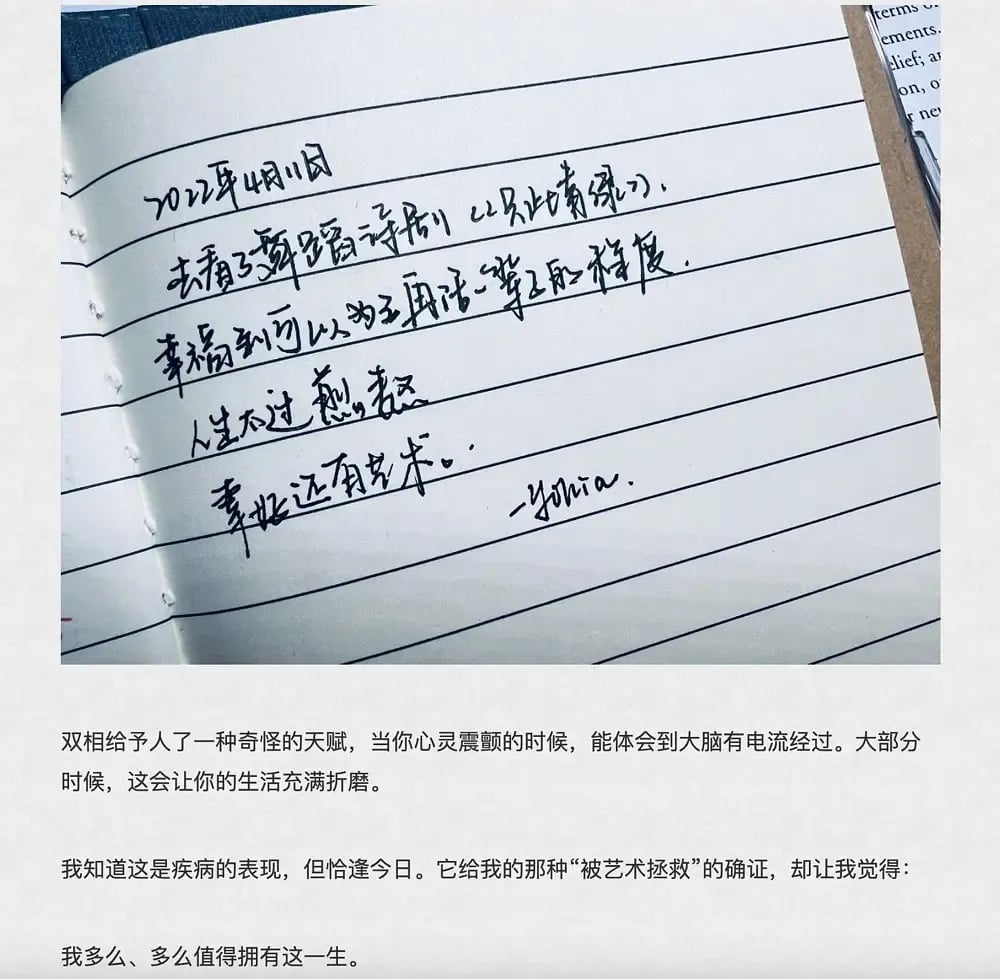 terms of
ements.
elief; a
on, o
r ne
2022年4月11日
去看了舞蹈诗剧《只此青绿》.
幸福到可以为之再活一辈子的程度.
人生太过煎熬
幸好还有艺术。
双相给予人了一种奇怪的天赋，当你心灵震颤的时候，能体会到大脑有电流经过。大部分
时候，这会让你的生活充满折磨。
我知道这是疾病的表现，但恰逢今日。它给我的那种“被艺术拯救”的确证，却让我觉得：
我多么、多么值得拥有这一生。